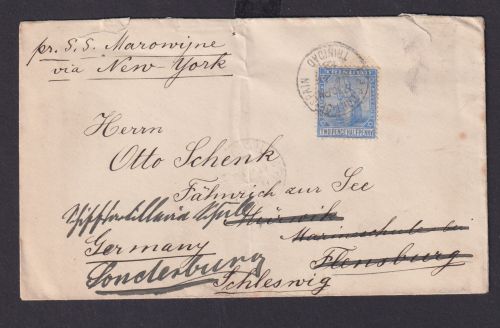 pr. S. S. Marowijne
via New York
TRINIDAD
TRINIDAD
TWO PENCE HALFPENNY
Herrn
Otto Schenk
Fähnrich zur See
Mürwik
Marineschule bei
Germany
Flensburg
Sonderburg
Schleswig